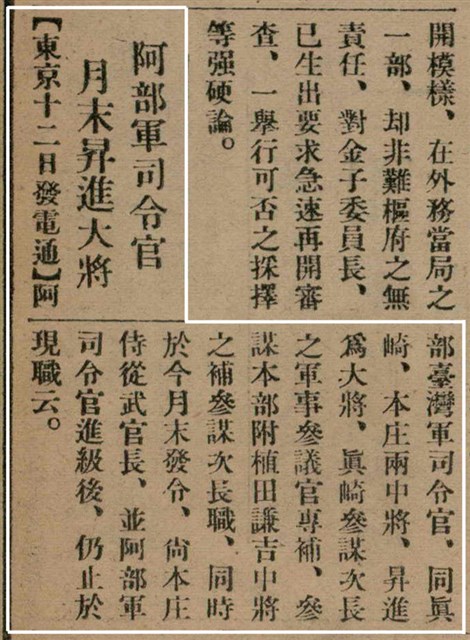 開模樣、在外務當局之
一部、却非難樞府之無
責任、對金子委員長、
已生出要求急速再開審
查、一舉行可否之採擇
等强硬論。
阿部軍司令官
月末昇進大將
【東京十二日發電通】阿
部臺灣軍司令官、同眞
崎、本庄兩中將、昇進
爲大將、眞崎參謀次長
之軍事參議官專補、參
謀本部附植田謙吉中將
之補參謀次長職、同時
於今月末發令、尙本庄
侍從武官長、並阿部軍
司令官進級後、仍止於
現職云。